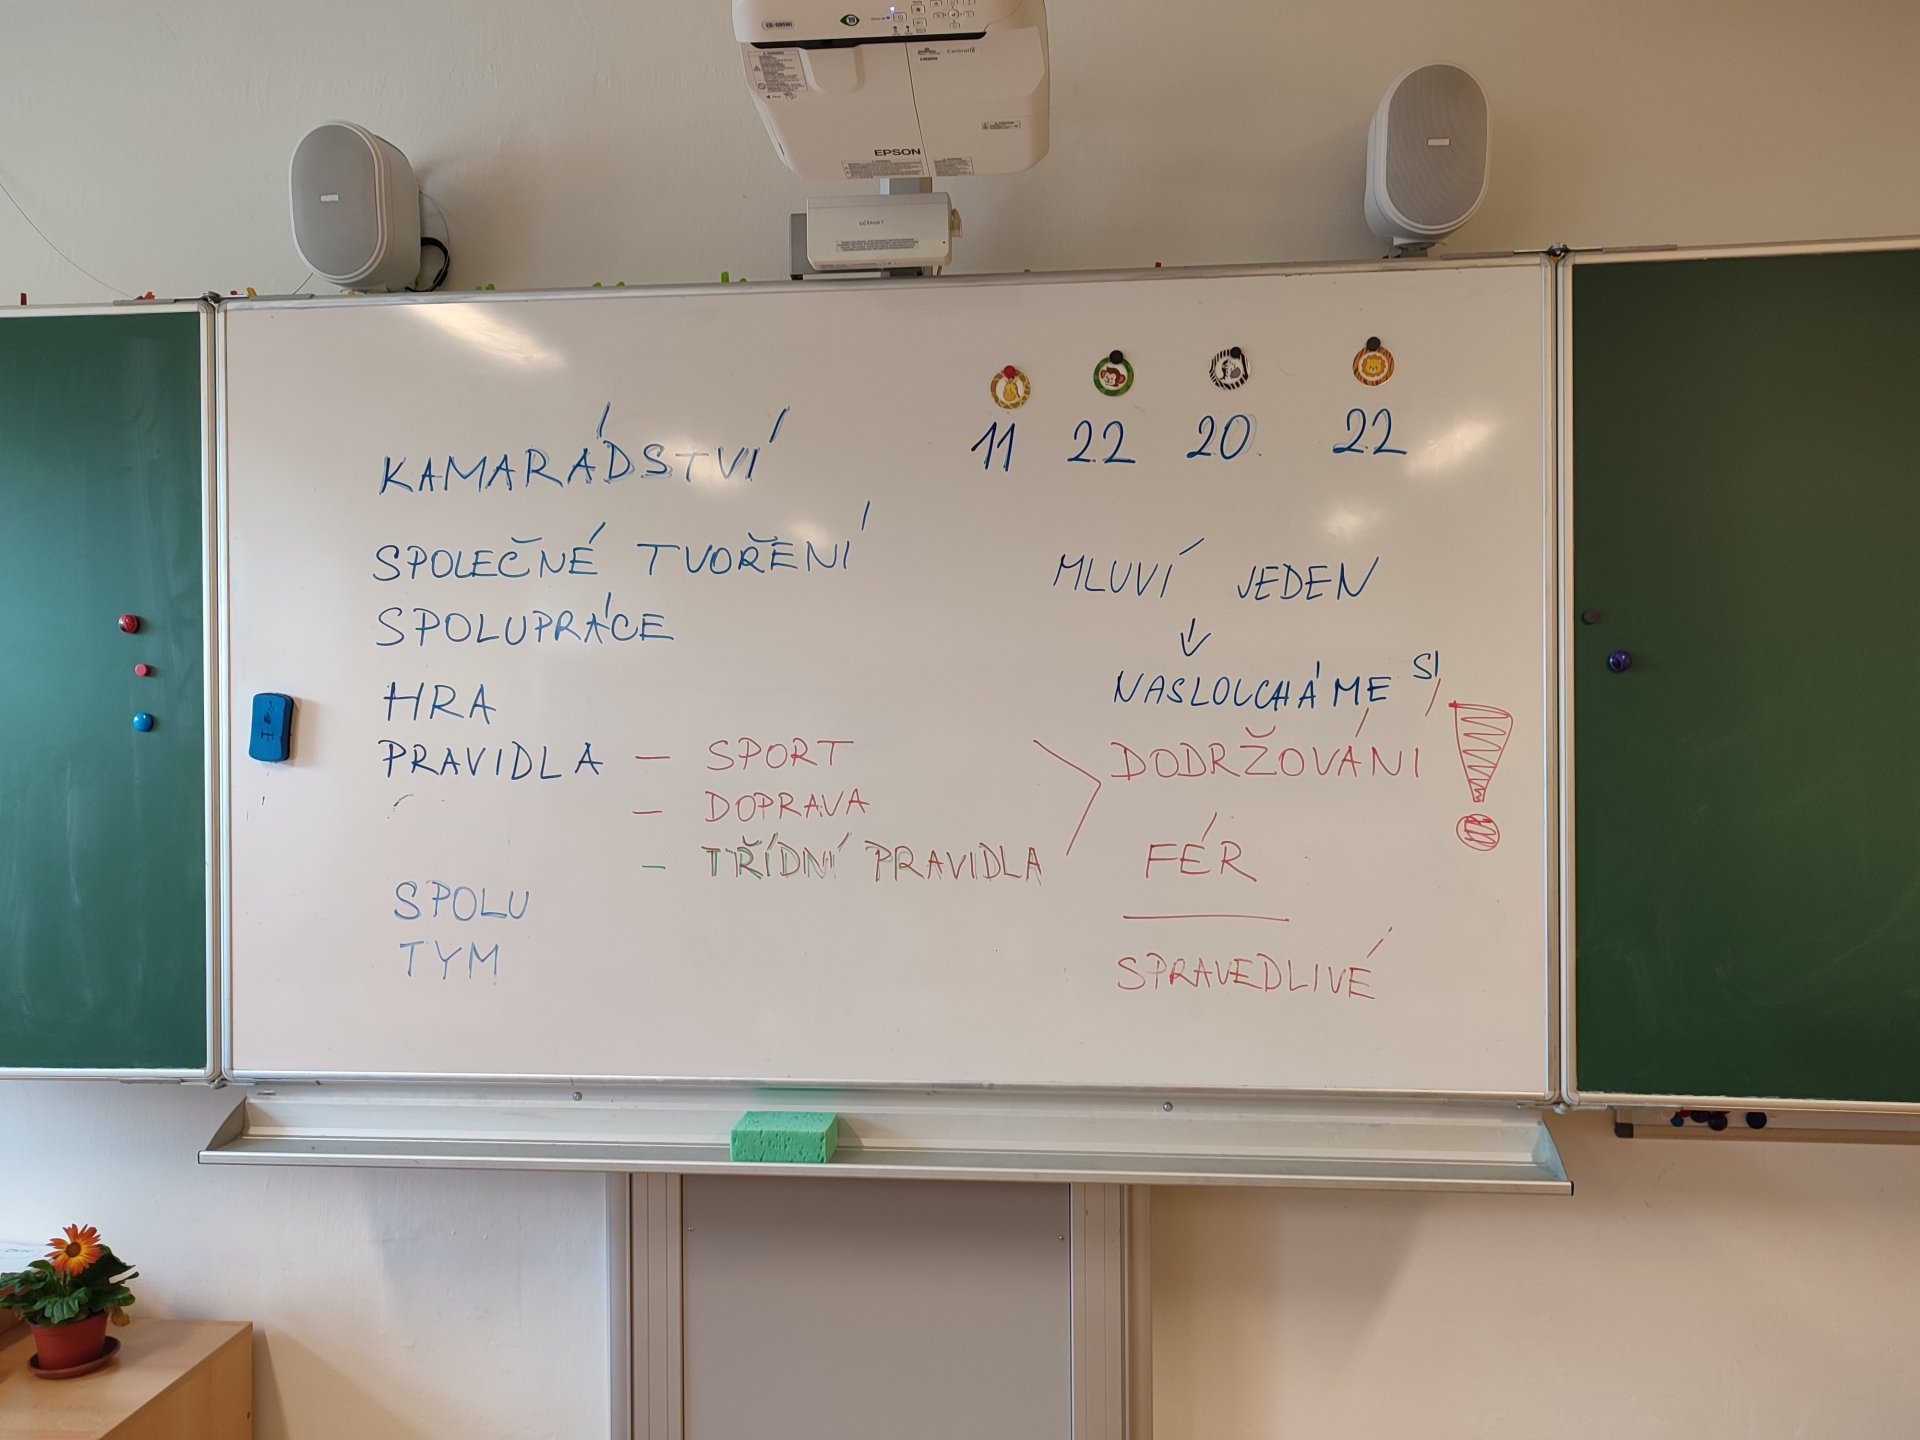 EPSON
11 22 20 22
KAMARÁDSTVÍ
SPOLEČNÉ TVOŘENÍ
SPOLUPRÁCE
HRA
PRAVIDLA — SPORT
— DOPRAVA
— TŘÍDNÍ PRAVIDLA
SPOLU
TYM
MLUVÍ JEDEN
↓
NASLOUCHÁME SI
DODRŽOVÁNÍ !
FÉR
SPRAVEDLIVÉ